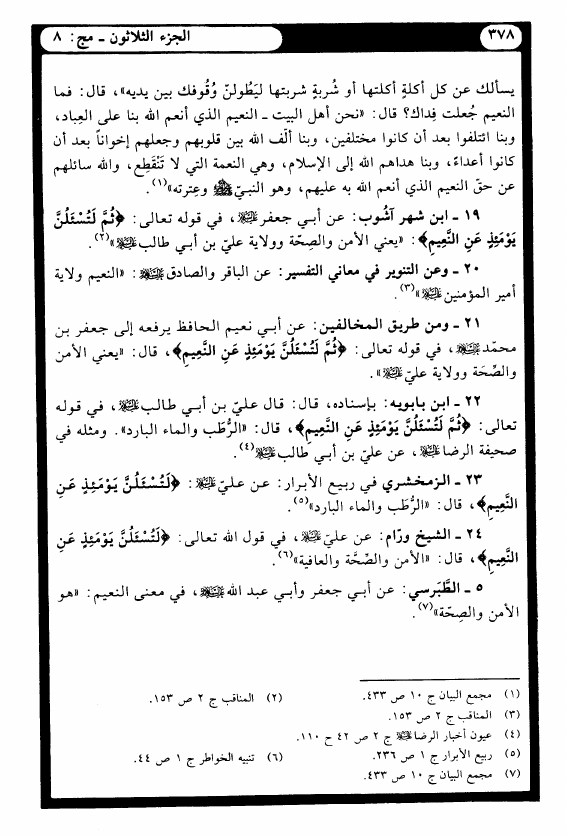 ٣٧٨
الجزء الثلاثون ـ مج: ٨
يسألك عن كل أكلةٍ أكلتها أو شُربةٍ شربتها ليَطولنّ وُقوفك بين يديه»، قال: فما
النعيم جُعلت فِداك؟ قال: «نحن أهل البيت ـ النعيم الذي أنعم الله بنا على العِباد،
وبنا ائتلفوا بعد أن كانوا مختلفين، وبنا ألّف الله بين قلوبهم وجعلهم إخواناً بعد أن
كانوا أعداءً، وبنا هداهم الله إلى الإسلام، وهي النعمة التي لا تَنْقَطِع، والله سائلهم
عن حقّ النعيم الذي أنعم الله به عليهم، وهو النبيّ ﷺ وعِترته»(١).
١٩ ـ ابن شهر آشُوب: عن أبي جعفر عليه السلام، في قوله تعالى: ﴿ثُمَّ لَتُسْئَلُنَّ
يَوْمَئِذٍ عَنِ النَّعِيمِ﴾: «يعني الأمن والصِحّة وولاية عليّ بن أبي طالب عليه السلام»(٢).
٢٠ ـ وعن التنوير في معاني التفسير: عن الباقر والصادق عليهما السلام: «النعيم ولاية
أمير المؤمنين عليه السلام»(٣).
٢١ ـ ومن طريق المخالفين: عن أبي نعيم الحافظ يرفعه إلى جعفر بن
محمّد عليه السلام، في قوله تعالى: ﴿ثُمَّ لَتُسْئَلُنَّ يَوْمَئِذٍ عَنِ النَّعِيمِ﴾، قال: «يعني الأمن
والصِّحَة وولاية عليّ عليه السلام».
٢٢ ـ ابن بابويه: بإسناده، قال: قال عليّ بن أبي طالب عليه السلام، في قوله
تعالى: ﴿ثُمَّ لَتُسْئَلُنَّ يَوْمَئِذٍ عَنِ النَّعِيمِ﴾، قال: «الرُّطَب والماء البارد». ومثله في
صحيفة الرضا عليه السلام، عن عليّ بن أبي طالب عليه السلام(٤).
٢٣ ـ الزمخشري في ربيع الأبرار: عن عليّ عليه السلام: ﴿لَتُسْئَلُنَّ يَوْمَئِذٍ عَنِ
النَّعِيمِ﴾، قال: «الرُّطَب والماء البارد»(٥).
٢٤ ـ الشيخ ورّام: عن عليّ عليه السلام، في قول الله تعالى: ﴿لَتُسْئَلُنَّ يَوْمَئِذٍ عَنِ
النَّعِيمِ﴾، قال: «الأمن والصِّحَّة والعافية»(٦).
٥ ـ الطَّبَرسي: عن أبي جعفر وأبي عبد الله عليهما السلام، في معنى النعيم: «هو
الأمن والصِحّة»(٧).
(١) مجمع البيان ج ١٠ ص ٤٣٣. (٢) المناقب ج ٢ ص ١٥٣.
(٣) المناقب ج ٢ ص ١٥٣.
(٤) عيون أخبار الرضا عليه السلام ج ٢ ص ٤٢ ح ١١٠.
(٥) ربيع الأبرار ج ١ ص ٢٣٦. (٦) تنبيه الخواطر ج ١ ص ٤٤.
(٧) مجمع البيان ج ١٠ ص ٤٣٣.